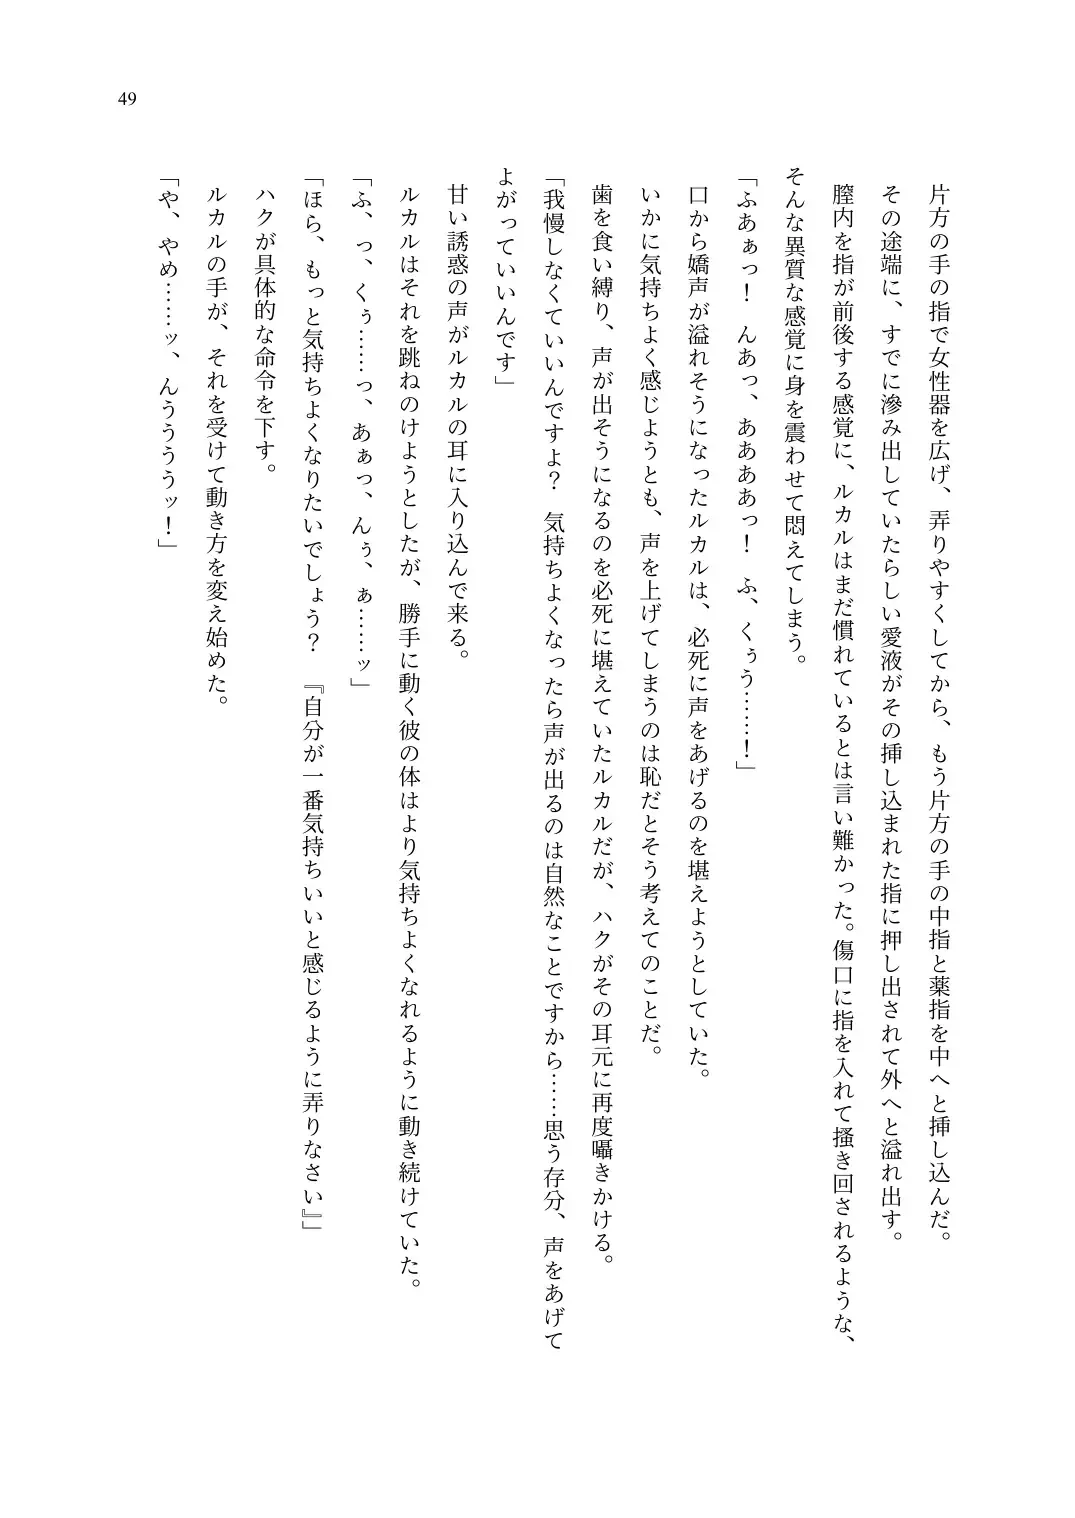 49
片方の手の指で女性器を広げ、弄りやすくしてから、もう片方の手の中指と薬指を中へと挿し込んだ。
その途端に、すでに滲み出していたらしい愛液がその挿し込まれた指に押し出されて外へと溢れ出す。
膣内を指が前後する感覚に、ルカルはまだ慣れているとは言い難かった。傷口に指を入れて掻き回されるような、
そんな異質な感覚に身を震わせて悶えてしまう。
「ふあぁっ！　んあっ、ああああっ！　ふ、くぅう……！」
口から嬌声が溢れそうになったルカルは、必死に声をあげるのを堪えようとしていた。
いかに気持ちよく感じようとも、声を上げてしまうのは恥だとそう考えてのことだ。
歯を食い縛り、声が出そうになるのを必死に堪えていたルカルだが、ハクがその耳元に再度囁きかける。
「我慢しなくていいんですよ？　気持ちよくなったら声が出るのは自然なことですから……思う存分、声をあげて
よがっていいんです」
甘い誘惑の声がルカルの耳に入り込んで来る。
ルカルはそれを跳ねのけようとしたが、勝手に動く彼の体はより気持ちよくなれるように動き続けていた。
「ふ、っ、くぅ……っ、あぁっ、んぅ、ぁ……ッ」
「ほら、もっと気持ちよくなりたいでしょう？　『自分が一番気持ちいいと感じるように弄りなさい』」
ハクが具体的な命令を下す。
ルカルの手が、それを受けて動き方を変え始めた。
「や、やめ……ッ、んうううッ！」